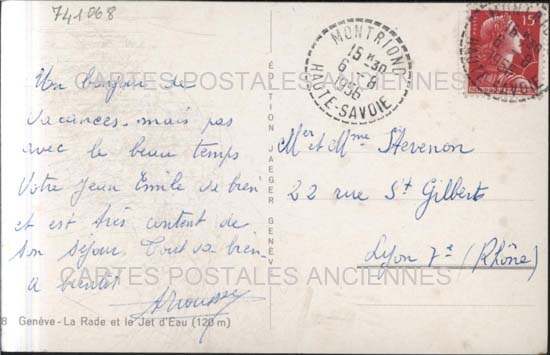 741068
MONTRIOND
15 H 30
6 - 8
1956
HAUTE-SAVOIE
15F
Un bonjour de
vacances - mais pas
avec le beau temps
Votre Jean Emile va bien
et est très content de
son séjour. Tout va bien -
a bientôt
Mer et Mme Stevenon
22 rue St Gilbert
Lyon 7e (Rhône)
EDITION JAEGER GENÈVE
CARTES POSTALES ANCIENNES
CARTES POSTALES ANCIENNES
8 Genève - La Rade et le Jet d'Eau (120 m)